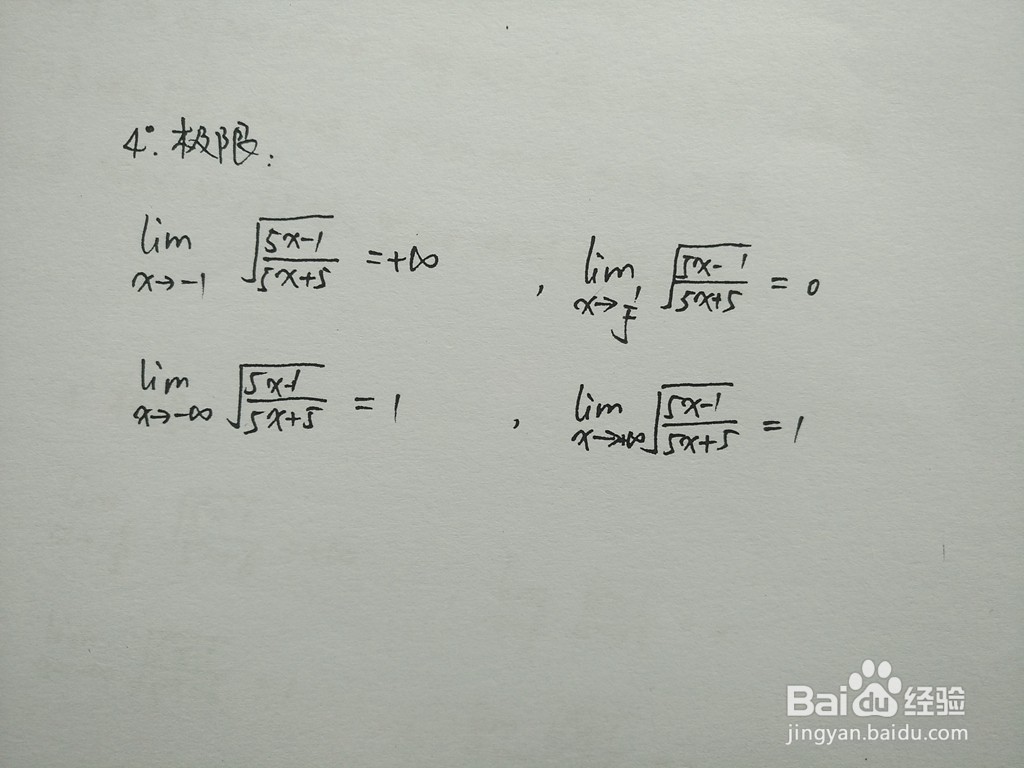 4°. 极限:
lim x→-1 √(5x-1)/(5x+5) = +∞ , lim x→1/5 √(5x-1)/(5x+5) = 0
lim x→-∞ √(5x-1)/(5x+5) = 1 , lim x→+∞ √(5x-1)/(5x+5) = 1
Baidu 经验
jingyan.baidu.com